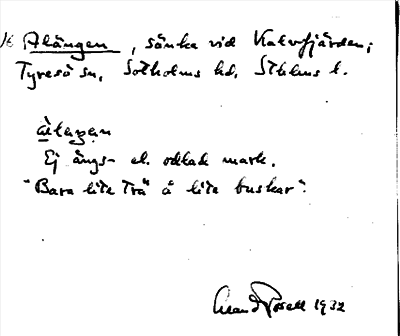 Alängen, sänka vid Kalvfjärden;
Tyresö sn, Sotholms hd, Sthlms l.
Ej ängs- el. odlad mark.
"Bara lite Trä å lite buskar".
1932